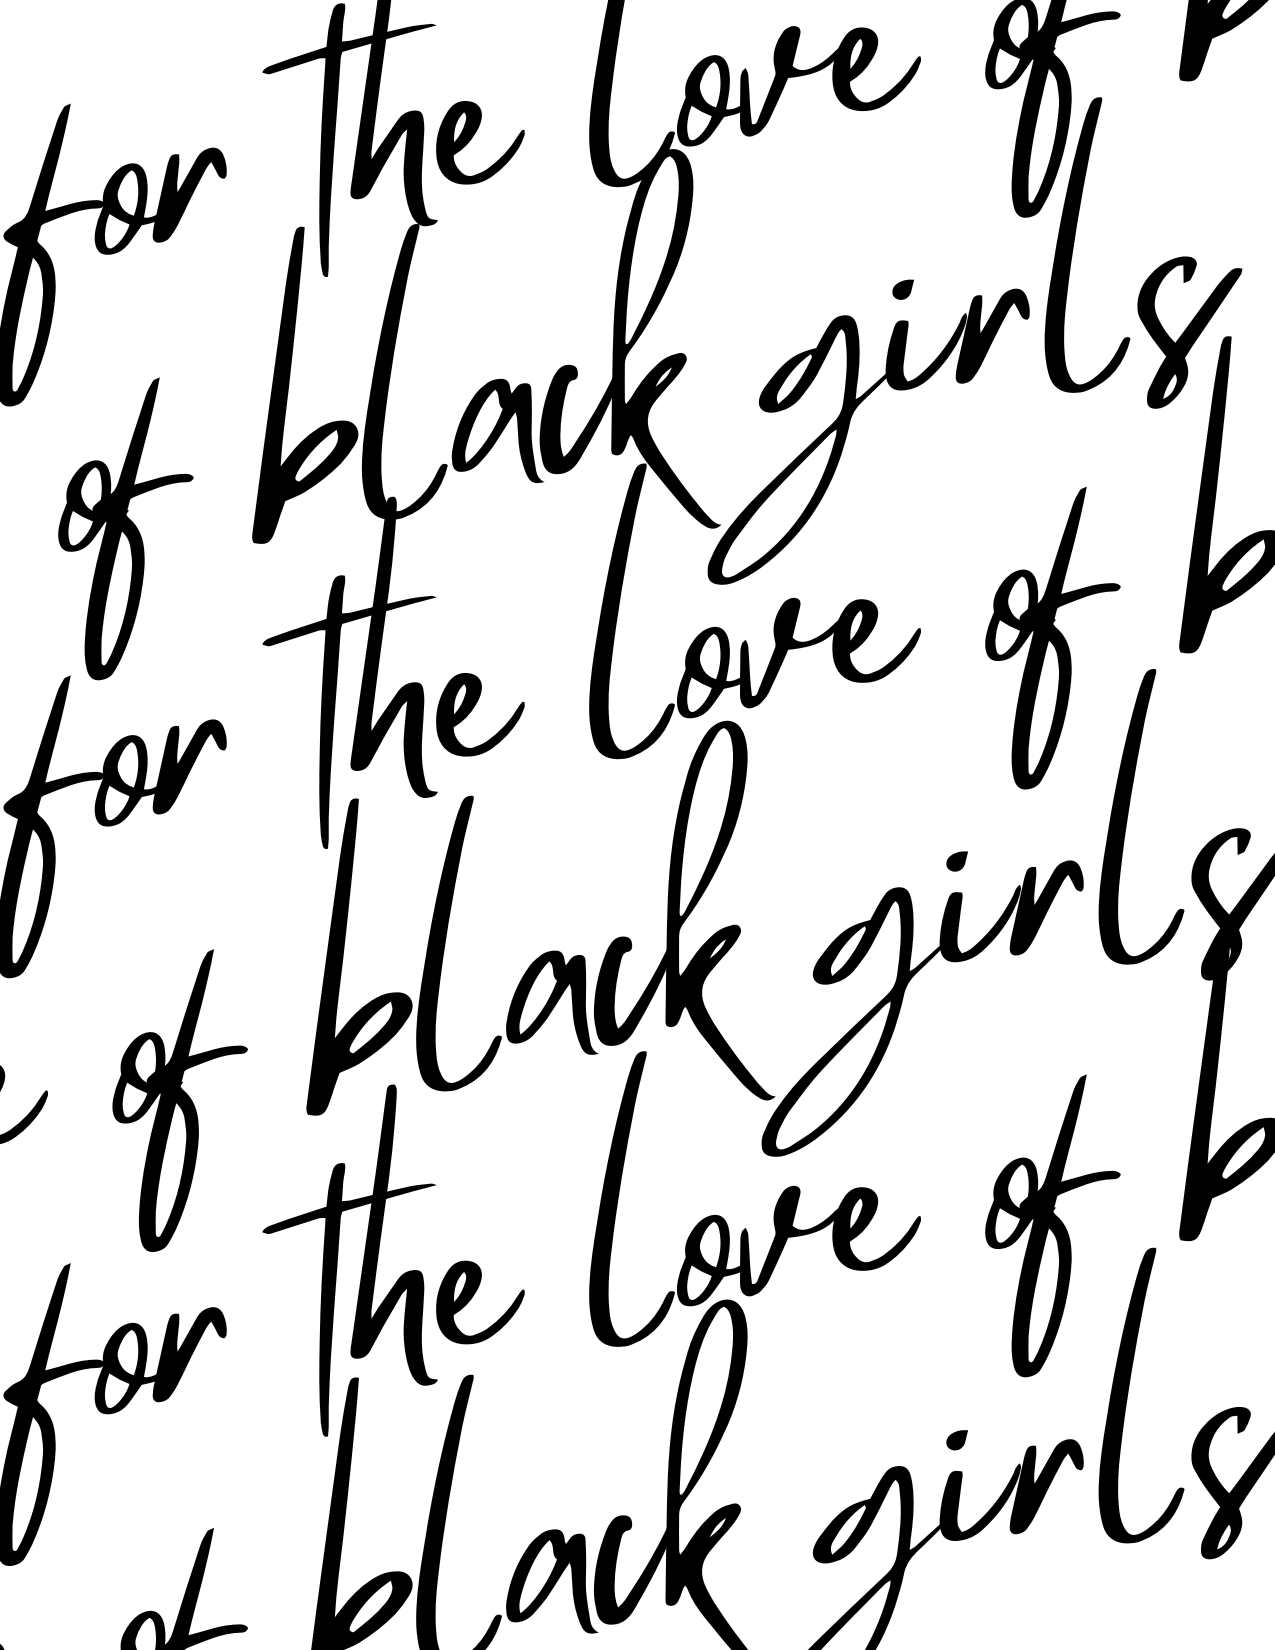 for the love of b
of black girls
for the love of b
of black girls
for the love of b
of black girls